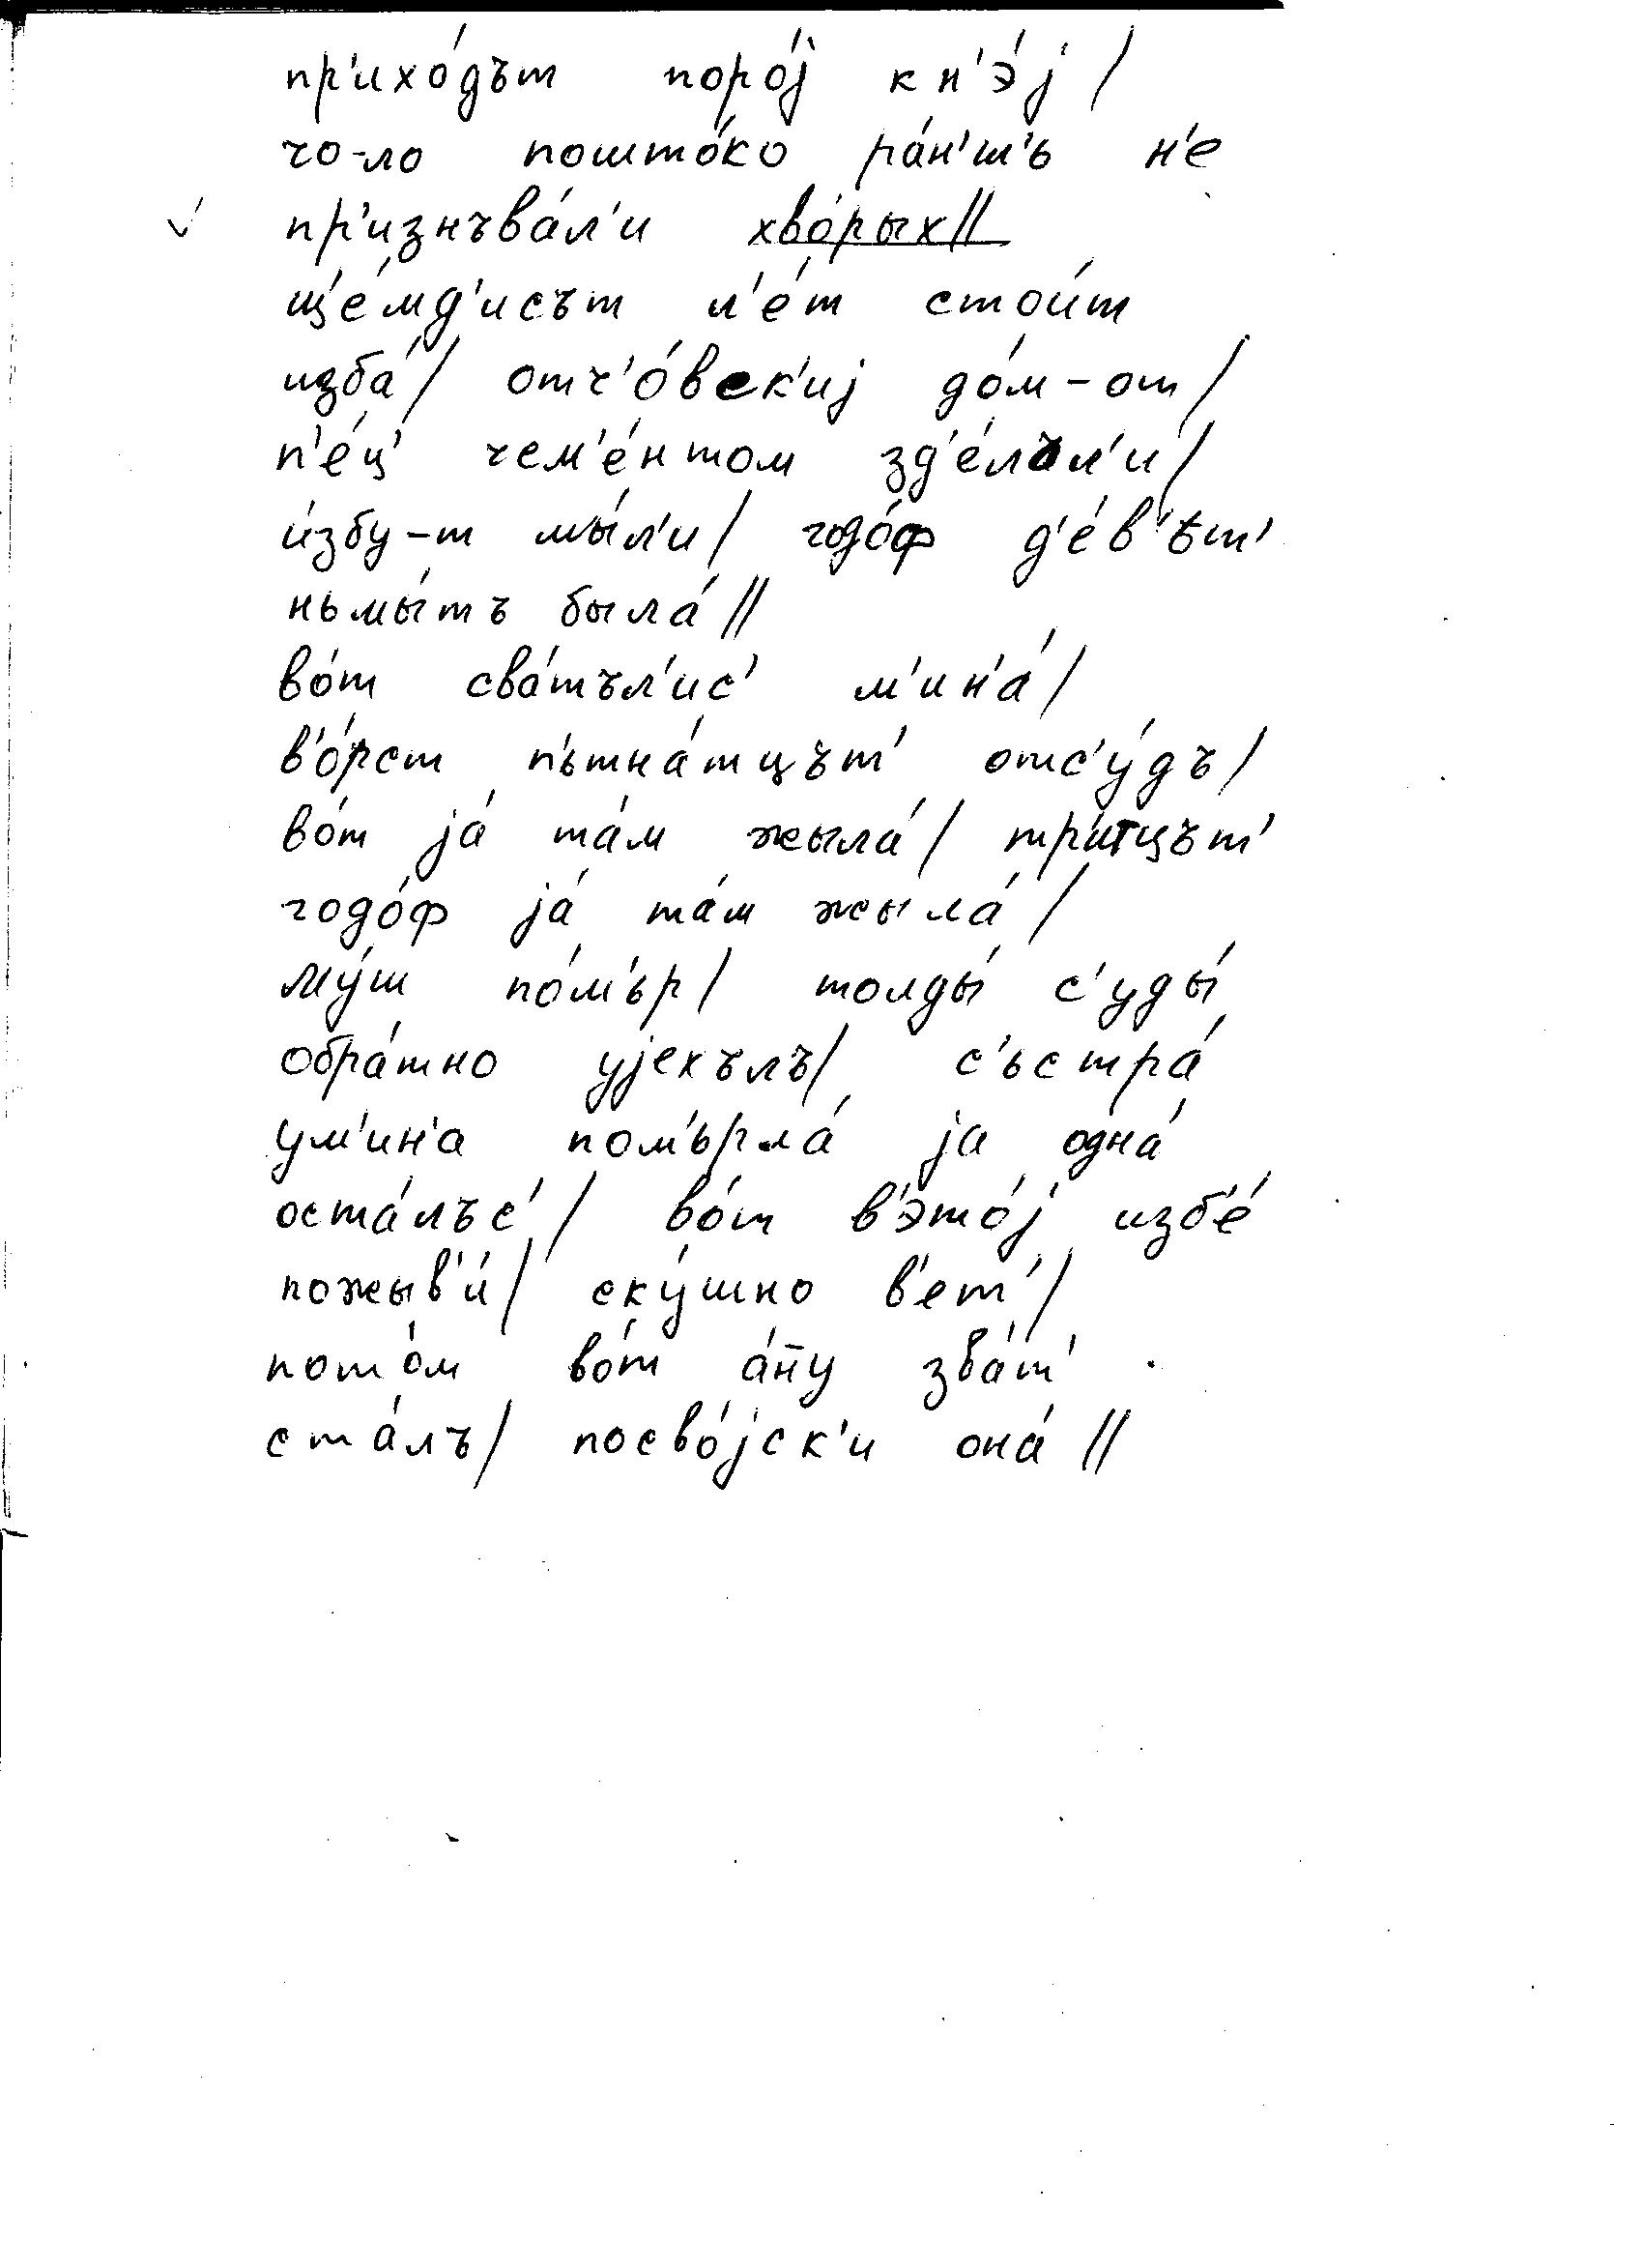 пр'ихо́дът поро́ј кн'э́ј /
чо-ло пошто́ко ра́н'ш'ь н'е
✓ пр'изнъва́л'и хво́рых//
щ'е́мд'исът л'е́т стои́т
изба́/ отч'о́век'иј до́м-от/
п'е́ц' чем'е́нтом зд'е́лъл'и/
и́збу-т мы́л'и/ годо́ф д'е́в'ьт'
ньмы́тъ была́//
во́т сва́тъл'ис' м'ин'а́/
в'о́рст п'ьтна́тцът' отс'у́дъ/
во́т ја́ та́м жыла́/ тр'и́тцът'
годо́ф ја́ та́м жыла́/
му́ш по́м'ьр/ толды́ с'уды́
обра́тно ујехълъ/ с'ьстра́
ум'ин'а пом'ьрла́ ја одна́
оста́лъс'/ во́т в'это́ј изб'е́
пожыв'и́/ ску́шно в'ет'/
пото́м во́т а́н̄у зва́т'
ста́лъ/ посво́јск'и она́//